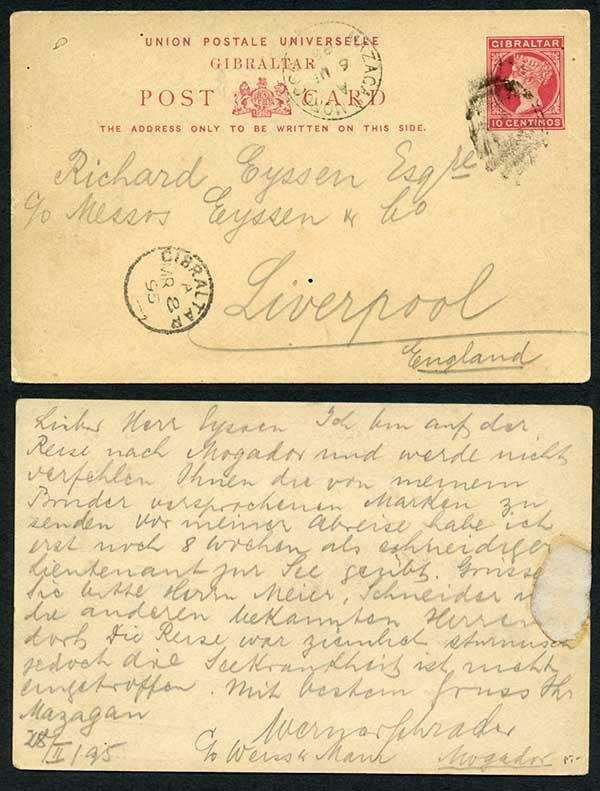 UNION POSTALE UNIVERSELLE
GIBRALTAR
POST CARD
THE ADDRESS ONLY TO BE WRITTEN ON THIS SIDE.
GIBRALTAR
10 CENTIMOS
MAZAGAN
Richard Eyssen Esqre
c/o Messrs Eyssen & Co
Liverpool
England
GIBRALTAR
A
MR 2
95
Lieber Herr Eyssen Ich bin auf der
Reise nach Mogador und werde nicht
verfehlen Ihnen die von meinem
Bruder versprochenen Marken zu
senden Vor meiner Abreise habe ich
erst noch 8 Wochen als schneidiger
Lieutenant zur See geübt. Grüssen
Sie bitte Herrn Meier, Schneider u
die anderen bekannten Herren
dort. Die Reise war ziemlich stürmisch
jedoch die Seekrankheit ist nicht
eingetroffen. Mit bestem Gruss Ihr
Mazagan
Werner Schrader
28/II/95
c/o Weiss & Maur Mogador